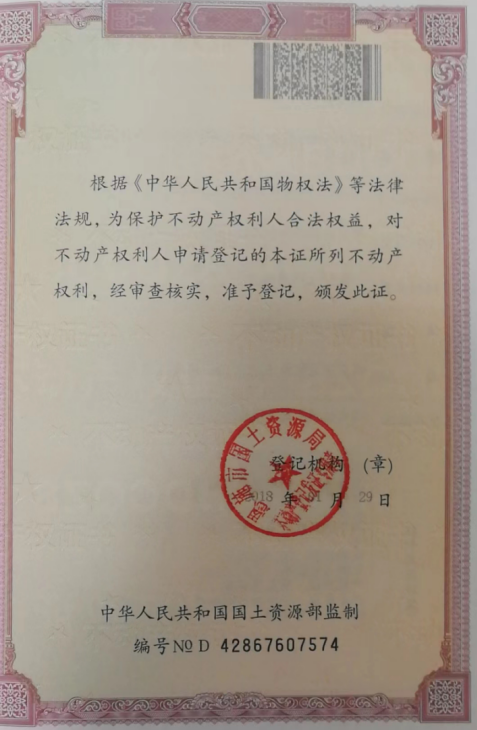 根据《中华人民共和国物权法》等法律
法规，为保护不动产权利人合法权益，对
不动产权利人申请登记的本证所列不动产
权利，经审查核实，准予登记，颁发此证。
市国土资源局
登记机构 (章)
2018 年 月 29 日
中华人民共和国国土资源部监制
编号 № D 42867607574